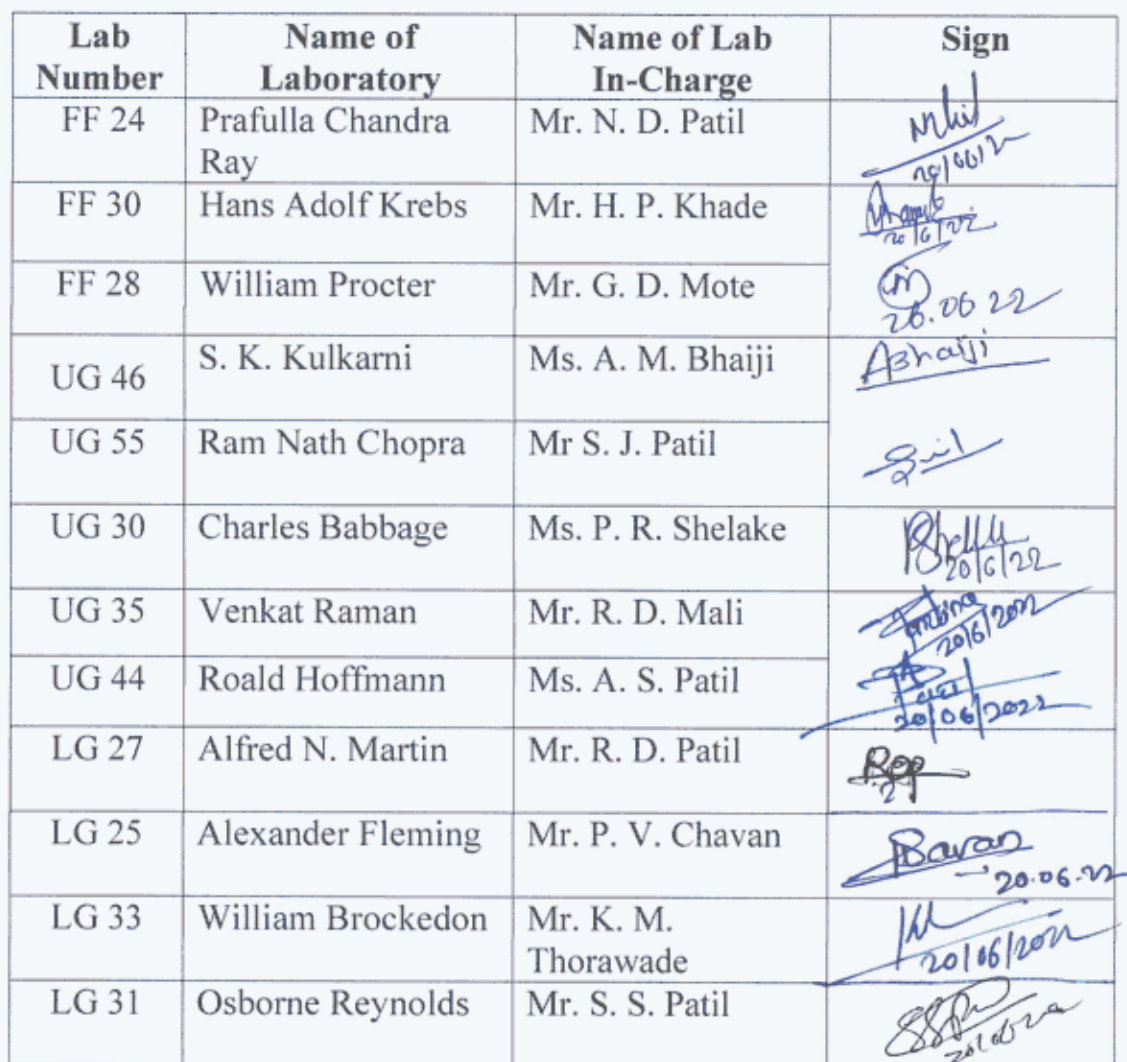 Lab Number Name of Laboratory Name of Lab In-Charge Sign
FF 24 Prafulla Chandra Ray Mr. N. D. Patil
20/06/22
FF 30 Hans Adolf Krebs Mr. H. P. Khade
20/6/22
FF 28 William Procter Mr. G. D. Mote
20.06 22
UG 46 S. K. Kulkarni Ms. A. M. Bhaiji ABhaiji
UG 55 Ram Nath Chopra Mr S. J. Patil
UG 30 Charles Babbage Ms. P. R. Shelake
20/6/22
UG 35 Venkat Raman Mr. R. D. Mali
20/6/2022
UG 44 Roald Hoffmann Ms. A. S. Patil
20/06/2022
LG 27 Alfred N. Martin Mr. R. D. Patil
LG 25 Alexander Fleming Mr. P. V. Chavan
20.06.22
LG 33 William Brockedon Mr. K. M. Thorawade
20/06/2022
LG 31 Osborne Reynolds Mr. S. S. Patil